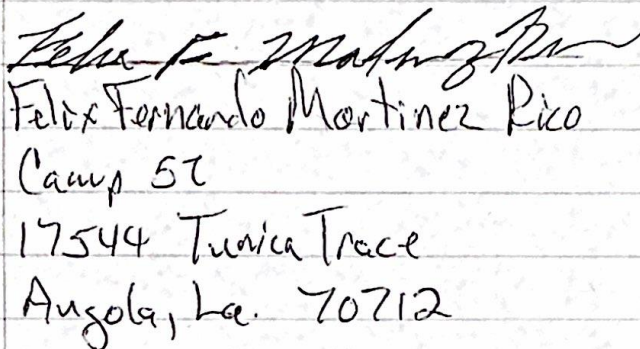 Felix F. Martinez Rico
Felix Fernando Martinez Rico
Camp 57
17544 Tunica Trace
Angola, La. 70712